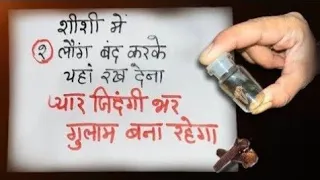 शीशी में
२ लौंग बंद करके
यहां रख देना
प्यार जिदंगी भर
गुलाम बना रहेगा